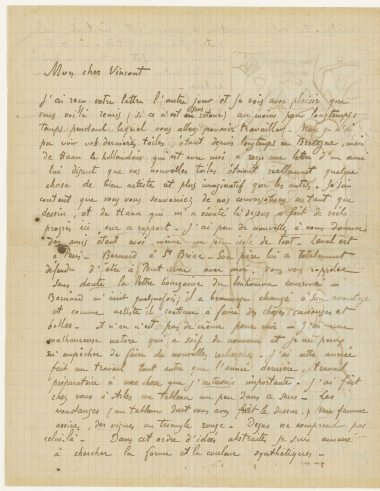 Mon cher Vincent
J'ai reçu votre lettre l'autre jour et je vois avec plaisir que
vous voilà remis (si ce n'est en retour) au moins pour longtemps:
temps pendant lequel vous allez pouvoir travailler. Je n'ai
pu voir vos dernières toiles étant depuis longtemps en Bretagne, mais
de Haan le hollandais qui est avec moi a reçu une lettre d'un ami
lui disant que vos nouvelles toiles étaient réellement quelque
chose de bien artiste et plus imaginatif que les autres. Je suis
content que vous vous souveniez de nos conversations autant que
dessin, et de Haan qui m'a écouté là dessus a fait de réels
progrès ici, sous ce rapport. J'ai peu de nouvelle à vous donner
des amis étant moi-même un peu isolé de tout. Laval est
à Paris. Bernard à St Briac. Son père lui a totalement
défendu d'être à Pont Aven avec moi. Vous vous rappelez
sans doute la lettre bourgeoise du bonhomme
Bernard m'écrit quelquefois; il a beaucoup changé à son avantage
et comme artiste il continue à faire des choses curieuses et
belles. Il n'en n'est pas de même pour moi. J'ai une
malheureuse nature qui a soif de nouveau et je ne peux
m'empêcher de faire de nouvelles recherches. J'ai cette année
fait un travail tout autre que l'année dernière, travail
préparatoire à une chose que j'entrevois importante. J'ai fait
chez vous à Arles un tableau un peu dans ce sens. Les
vendanges (un tableau dont vous avez fait le dessin) une femme
assise, des vignes en triangle rouge. Degas ne comprend pas
celui là. Dans cet ordre d'idées abstraites je suis amené
à chercher la forme et la couleur synthétiques.